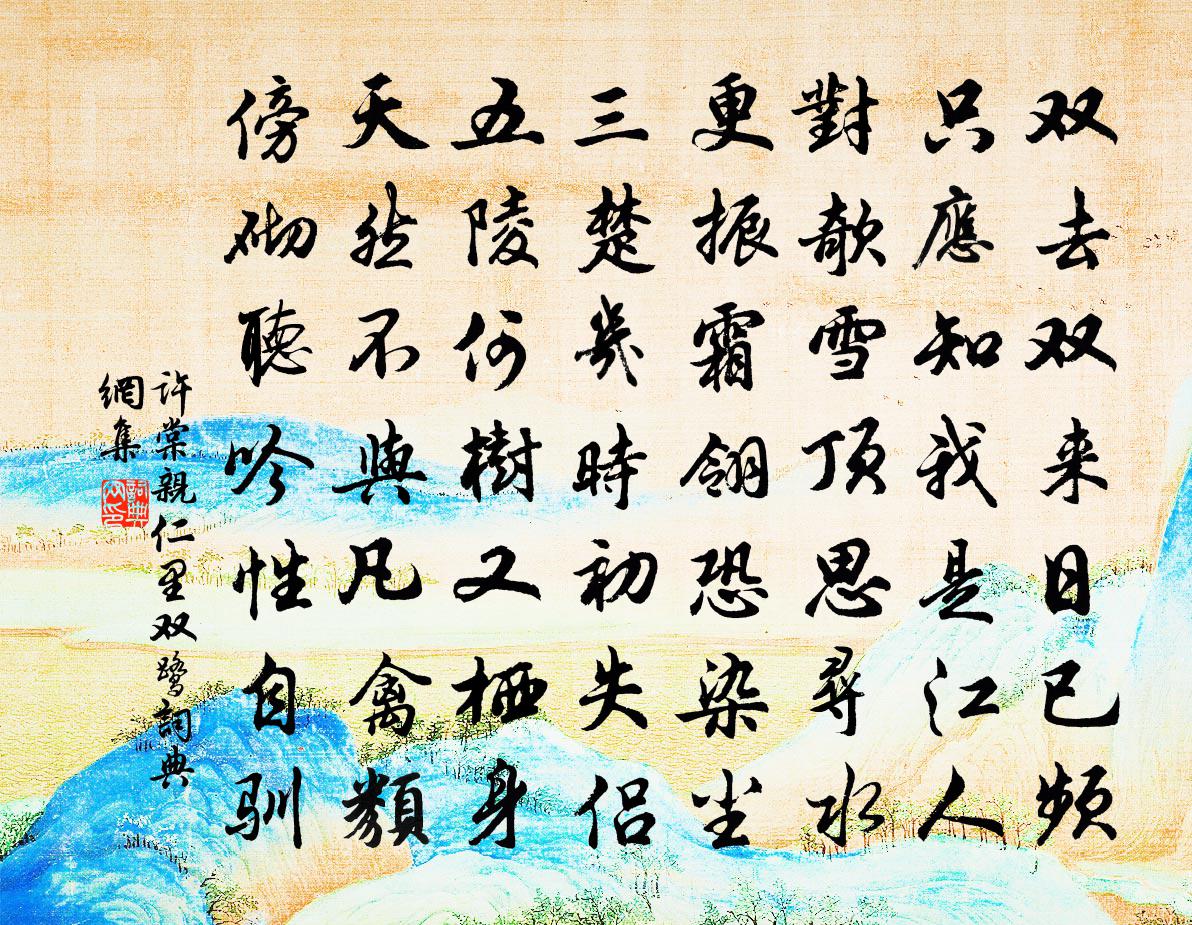 双去双来日已频
只應知我是江人
對欹雪頂思尋水
更振霜翎恐染尘
三楚幾時初失侣
五陵何樹又栖身
天然不與凡禽類
傍砌聽吟性自驯
許棠親仁里双鹭詞典
網集
詞典